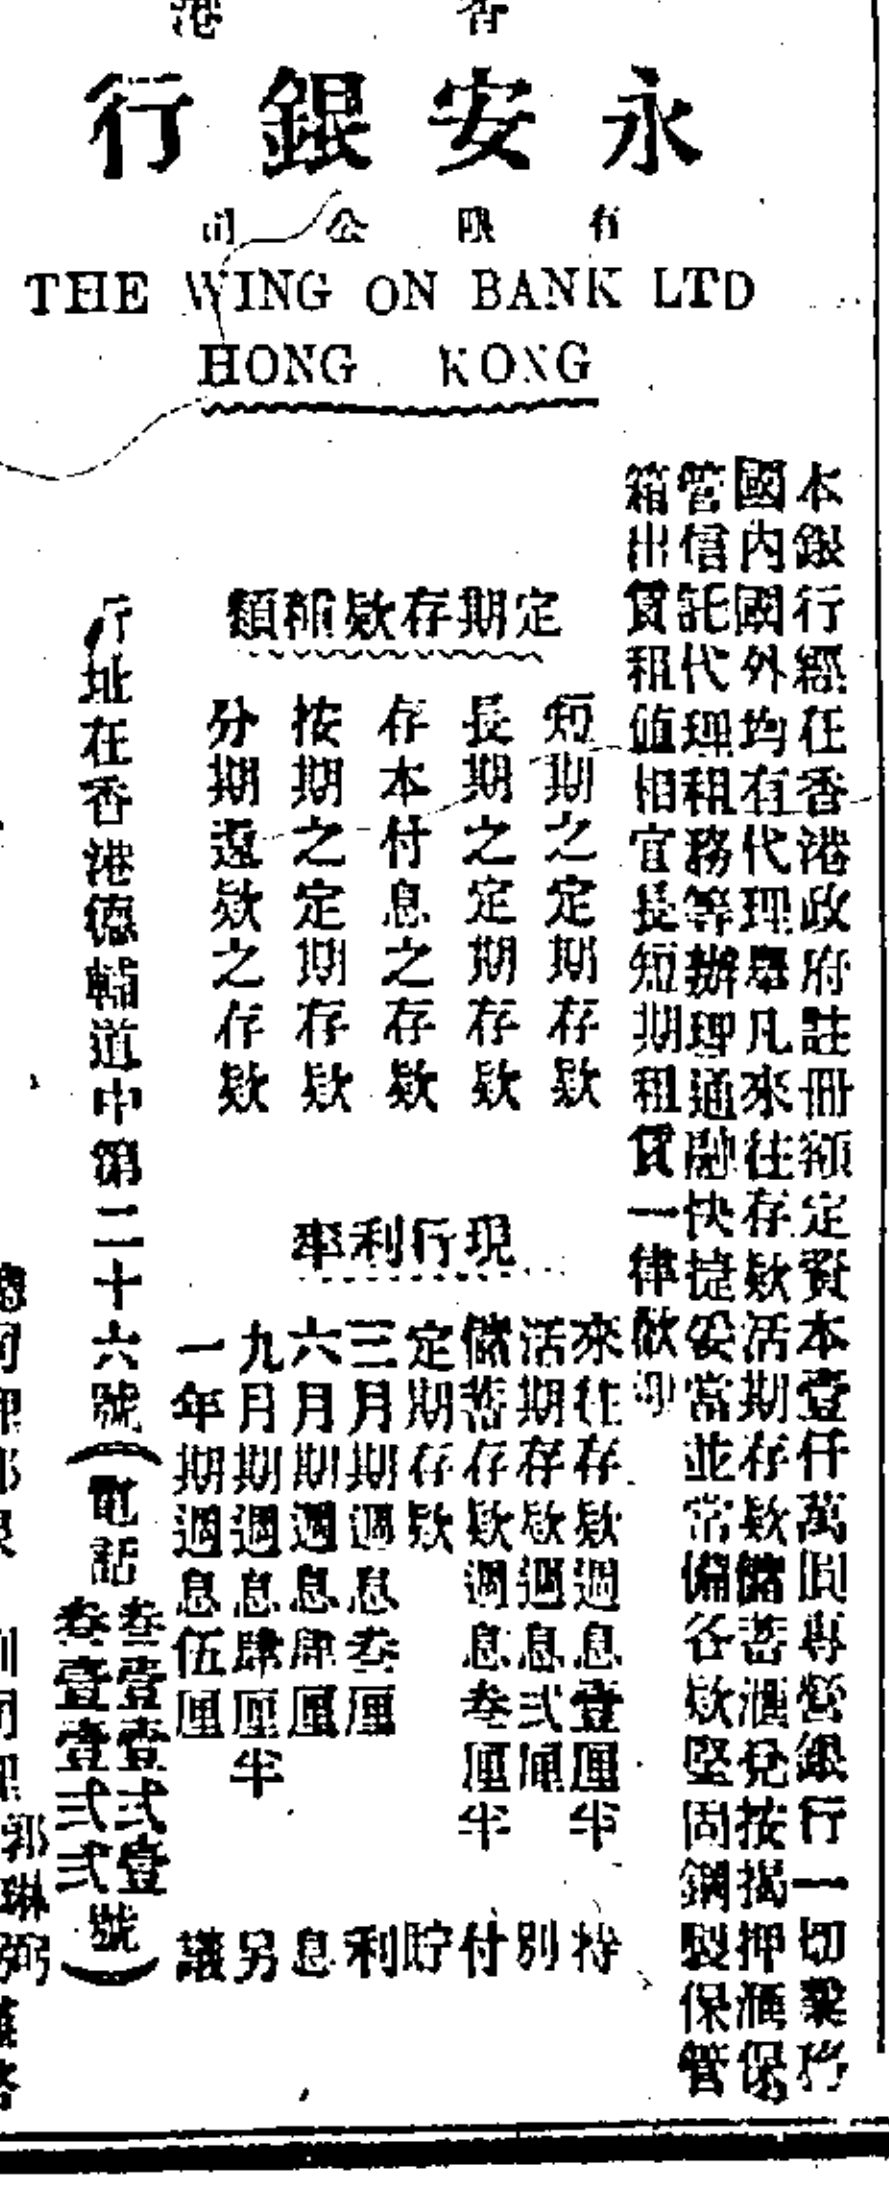 香港
永安銀行
有限公司
THE WING ON BANK LTD
HONG KONG
本銀行經在香港政府註冊額定資本壹仟萬圓專營銀行一切業務
國內國外均有代理舉凡來往存欵活期存欵儲蓄滙兌按揭押滙保
管信託代理租務等辦理通融快捷妥當並常備各欵堅固鋼製保管
箱出賃租值相宜長短期租賃一律歡迎
定期存欵種類
短期之定期存欵
長期之定期存欵
存本付息之存欵
按期之定期存欵
分期還欵之存欵
現行利率
來往存欵週息壹厘半
活期存欵週息弍厘
儲蓄存欵週息叁厘半
定期存欵
三月期週息叁厘
六月期週息肆厘
九月期週息肆厘半
一年期週息伍厘
特別付貯利息另議
行址在香港德輔道中第二十六號(電話叁壹壹弍壹 叁壹壹弍弍號)
郭琳弼